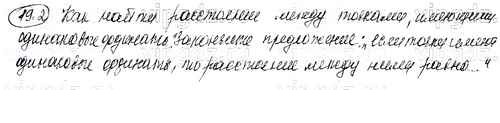 19.2 Как найти расстояние между точками, имеющими
одинаковые ординаты? Закончите предложение: „Если точки имеют
одинаковые ординаты, то расстояние между ними равно..."